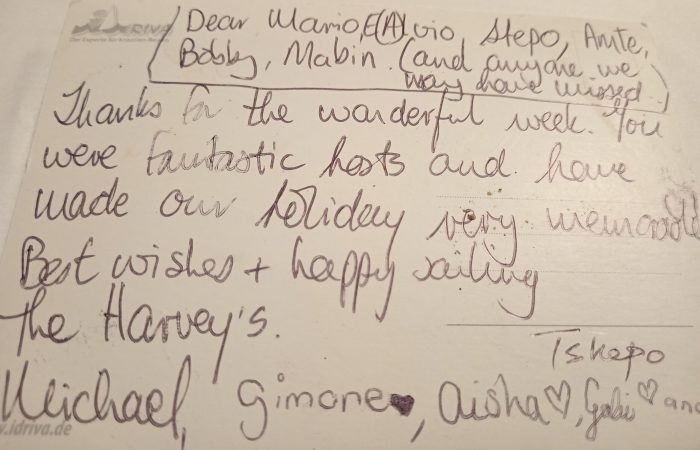 IDRIVA
Die Experten für Kroatien-Reisen
Dear Mario, E(A)lvio, Stepo, Ante,
Bobby, Mabin. (and anyone we
may have missed)
Thanks for the wonderful week. You
were fantastic hosts and have
made our holiday very memorable
Best wishes + happy sailing
The Harvey's.
Tskepo
Michael, Simone♥, Aisha♡, Gabi♡ and
w.idriva.de